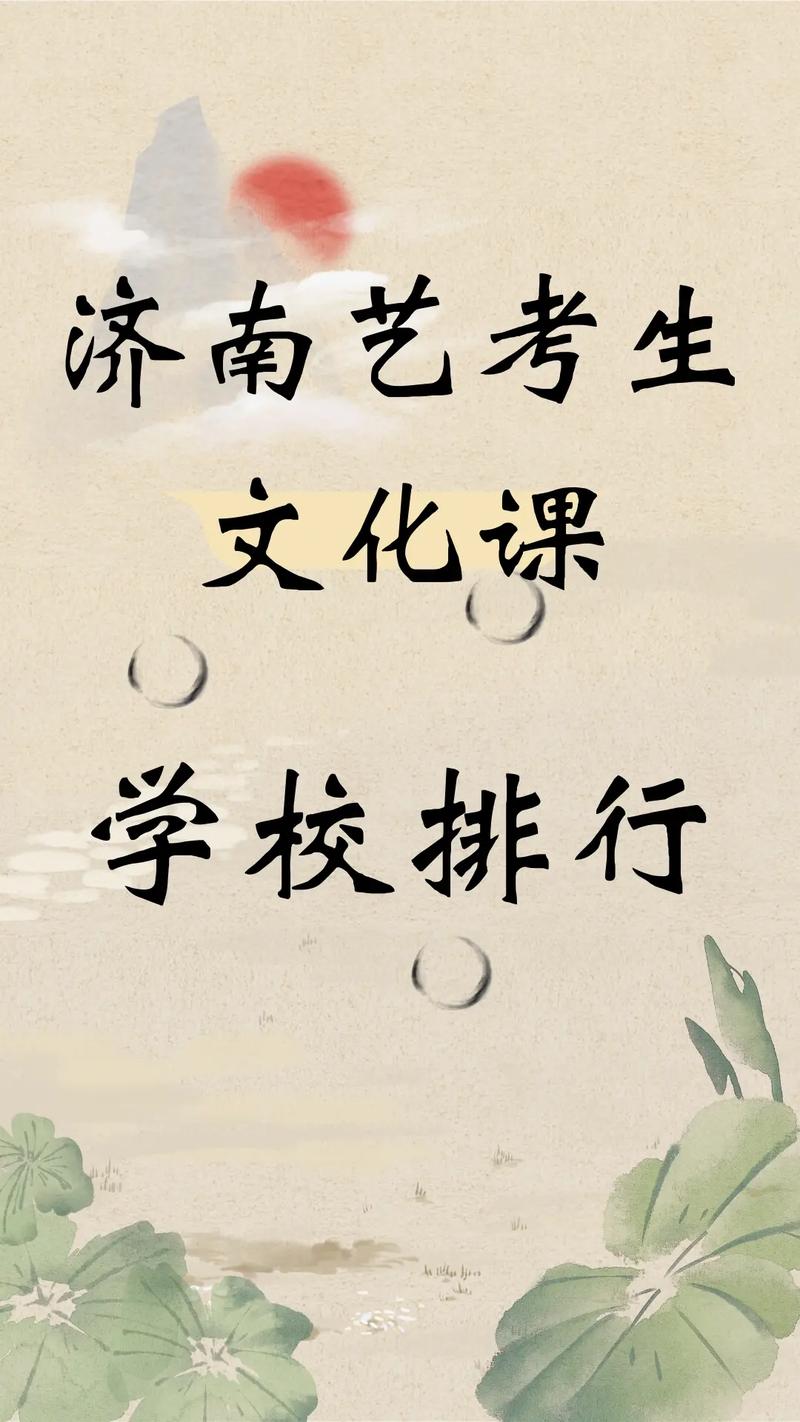 济南艺考生
文化课
学校排行